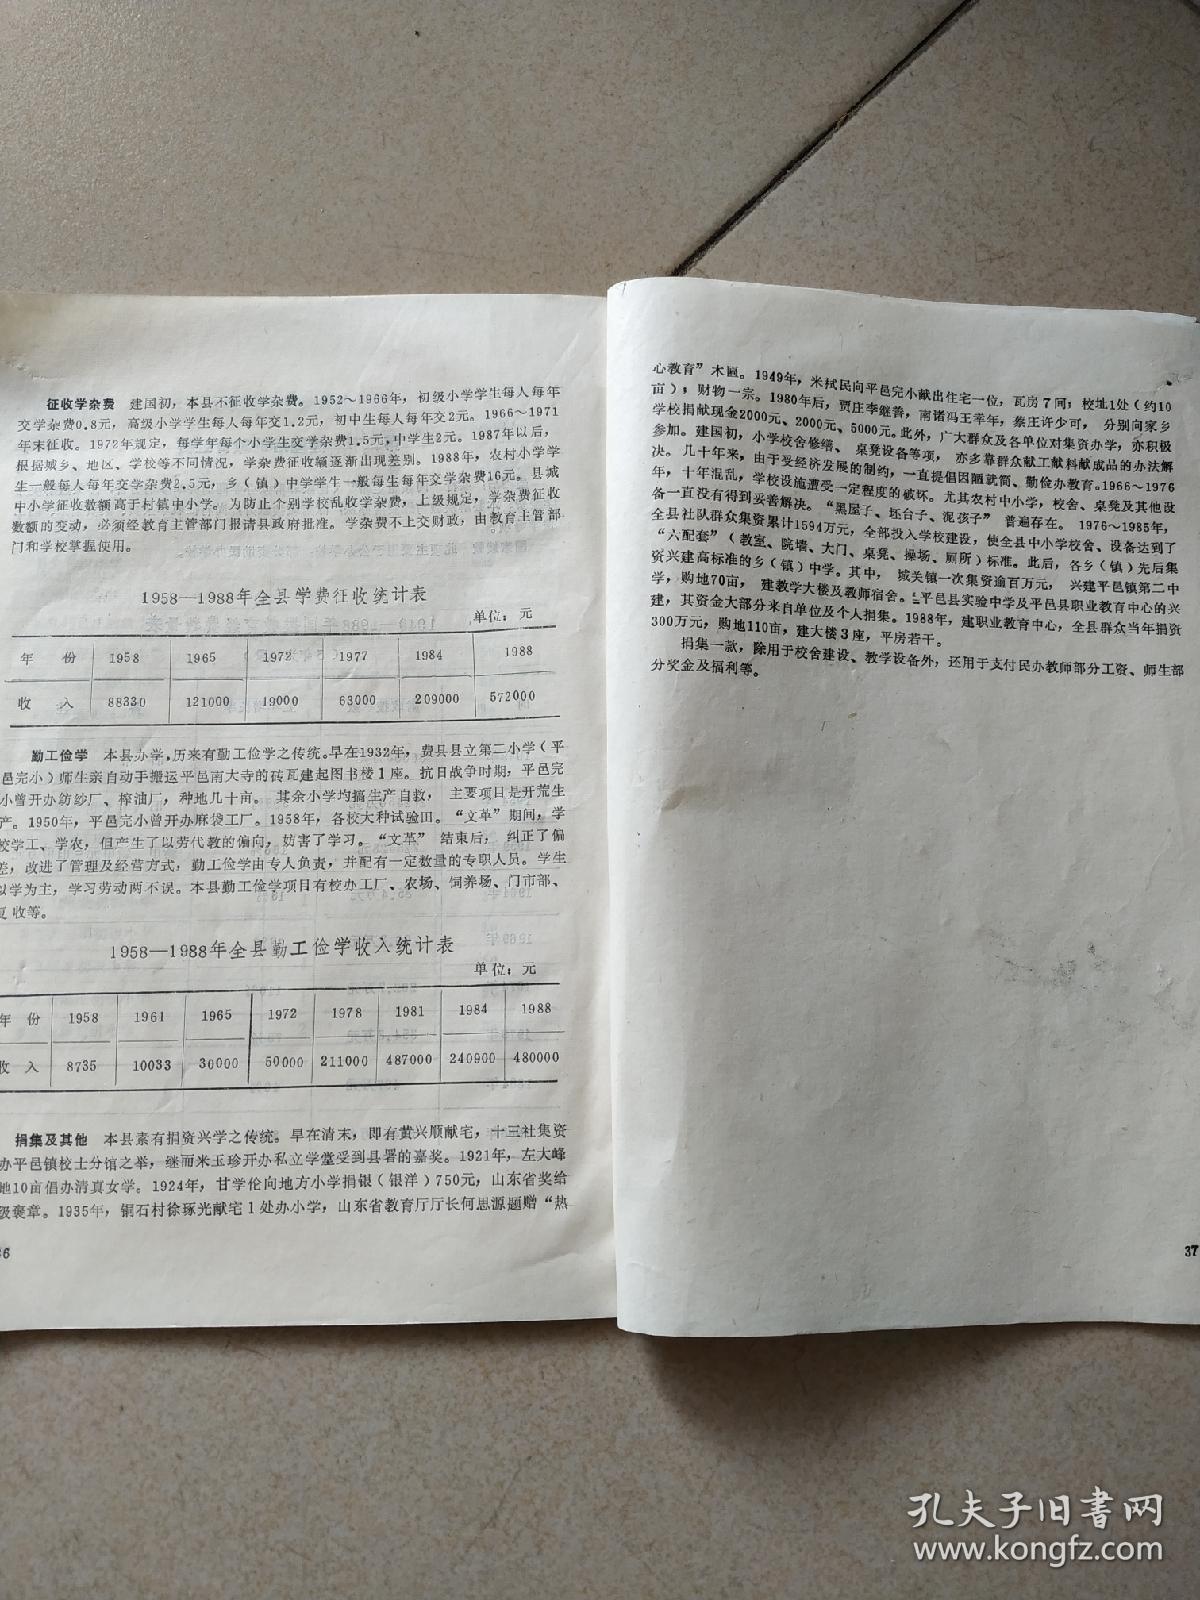 征收学杂费 建国初，本县不征收学杂费。1952～1966年，初级小学学生每人每年
交学杂费0.8元，高级小学学生每人每年交1.2元，初中生每人每年交2元。1966～1971
年未征收。1972年规定，每学年每个小学生交学杂费1.5元，中学生2元。1987年以后，
根据城乡、地区、学校等不同情况，学杂费征收额逐渐出现差别。1988年，农村小学学
生一般每人每年交学杂费2.5元，乡（镇）中学学生一般每生每年交学杂费16元。县城
中小学征收数额高于村镇中小学。为防止个别学校乱收学杂费，上级规定，学杂费征收
数额的变动，必须经教育主管部门报请县政府批准。学杂费不上交财政，由教育主管部
门和学校掌握使用。
1958—1988年全县学费征收统计表
单位：元
年 份 1958 1965 1972 1977 1984 1988
收 入 88330 121000 19000 63000 209000 572000
勤工俭学 本县办学，历来有勤工俭学之传统。早在1932年，费县县立第二小学（平
邑完小）师生亲自动手搬运平邑南大寺的砖瓦建起图书楼1座。抗日战争时期，平邑完
小曾开办纺纱厂、榨油厂，种地几十亩。其余小学均搞生产自救，主要项目是开荒生
产。1950年，平邑完小曾开办麻袋工厂。1958年，各校大种试验田。“文革”期间，学
校学工、学农，但产生了以劳代教的偏向，妨害了学习。“文革”结束后，纠正了偏
差，改进了管理及经营方式，勤工俭学由专人负责，并配有一定数量的专职人员。学生
以学为主，学习劳动两不误。本县勤工俭学项目有校办工厂、农场、饲养场、门市部、
夏收等。
1958—1988年全县勤工俭学收入统计表
单位：元
年 份 1958 1961 1965 1972 1978 1981 1984 1988
收 入 8735 10033 30000 50000 211000 487000 240900 480000
捐集及其他 本县素有捐资兴学之传统。早在清末，即有黄兴顺献宅，十三社集资
办平邑镇校士分馆之举，继而米玉珍开办私立学堂受到县署的嘉奖。1921年，左大峰
地10亩倡办清真女学。1924年，甘学伦向地方小学捐银（银洋）750元，山东省奖给
级褒章。1935年，铜石村徐琢光献宅1处办小学，山东省教育厅厅长何思源题赠“热
36
心教育”木匾。1949年，米拭民向平邑完小献出住宅一位，瓦房7间；校址1处（约10
亩）；财物一宗。1980年后，贾庄李继善，南诸冯王幸年，蔡王许少可，分别向家乡
学校捐献现金2000元、2000元、5000元。此外，广大群众及各单位对集资办学，亦积极
参加。建国初，小学校舍修缮、桌凳设备等项，亦多靠群众献工献料献成品的办法解
决。几十年来，由于受经济发展的制约，一直提倡因陋就简、勤俭办教育。1966～1976
年，十年混乱，学校设施遭受一定程度的破坏。尤其农村中小学，校舍、桌凳及其他设
备一直没有得到妥善解决。“黑屋子、坯台子、泥孩子”普遍存在。1976～1985年，
全县社队群众集资累计1594万元，全部投入学校建设，使全县中小学校舍、设备达到了
“六配套”（教室、院墙、大门、桌凳、操场、厕所）标准。此后，各乡（镇）先后集
资兴建高标准的乡（镇）中学。其中，城关镇一次集资逾百万元，兴建平邑镇第二中
学，购地70亩，建教学大楼及教师宿舍。平邑县实验中学及平邑县职业教育中心的兴
建，其资金大部分来自单位及个人捐集。1988年，建职业教育中心，全县群众当年捐资
300万元，购地110亩，建大楼3座，平房若干。
捐集一款，除用于校舍建设、教学设备外，还用于支付民办教师部分工资、师生部
分奖金及福利等。
37
孔夫子旧书网
www.kongfz.com